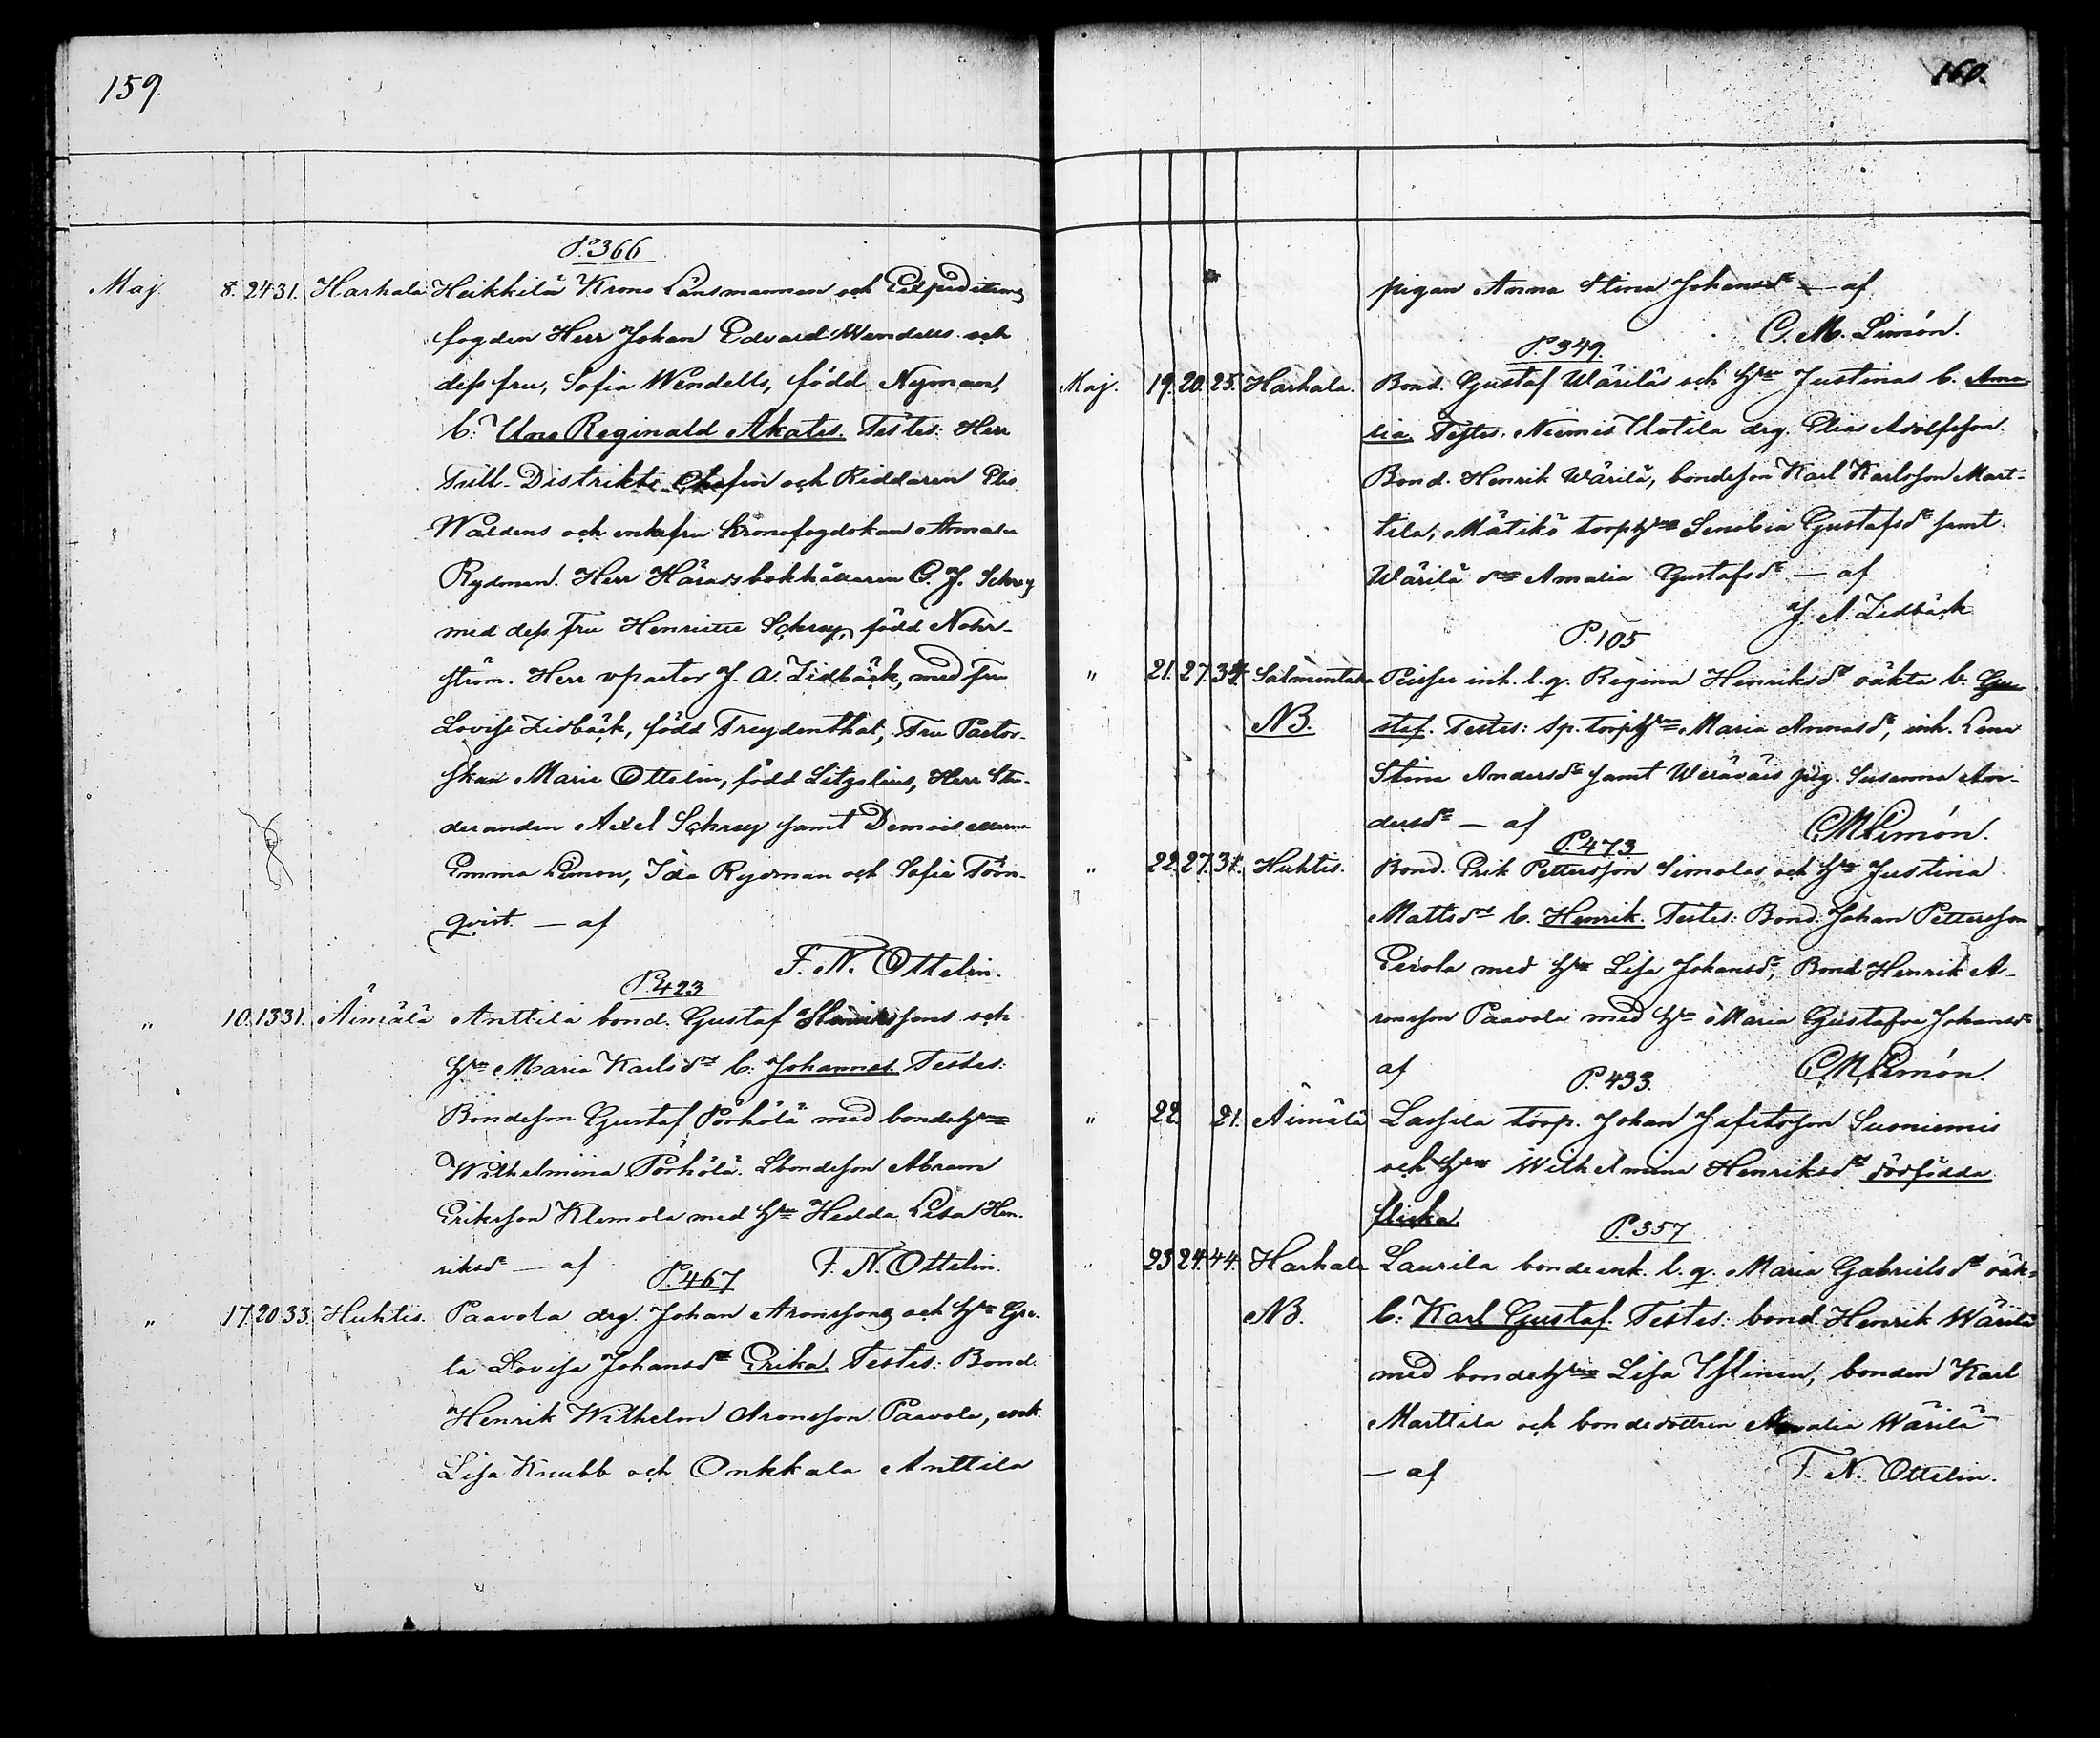 159.
P. 366
Maj. 8. 24 31. Harhala Heikkilä Krono Länsmannen och Expeditions
fogden Herr Johan Edvard Wendells och
dess fru, Sofia Wendells, född Nyman,
b. Uno Reginald Akates. Testes: Herr
Tull-Distrikts Chefen och Riddaren Elis
Waldens och enkefru Kronofogdskan Amalia
Rydman. Herr Häradsbokhållaren C. J. Schrey
med dess fru Henriette Schrey, född Nohr-
ström. Herr vpastor J. A. Zidbäck, med fru
Lovisa Zidbäck, född Freydenthal, Fru Pastor-
skan Marie Ottelin, född Litzelius, Herr Stu-
deranden Axel Schrey samt Demoisellerna
Emma Limon, Ida Rydman och Sofia Törn-
qvist. — af
F. N. Ottelin.
P. 423
" 10. 13 31. Äimälä Anttila bond. Gustaf Henrikssons och
hru Maria Karlsdr b: Johannes. Testes:
Bondeson Gustaf Pörhölä med bondehru
Wilhelmina Pörhölä. Sbondeson Abram
Eriksson Klemola med hru Hedda Lisa Hen-
riksdr — af F. N. Ottelin.
P. 467
" 17 20 33. Huhtis. Paavola drg. Johan Aronssons och hru Gre-
ta Lovisa Johansdr Erika. Testes: Bond.
Henrik Wilhelm Aronsson Paavola, enk.
Lisa Knubb och Onkkala Anttila
160.
pigan Anna Stina Johansdr — af
C. M. Limón.
P. 349.
Maj. 19. 20. 25. Harhala. Bond. Gustaf Wäriläs och hru Justinas b. Ama-
lia. Testes. Niemis Utotila drg. Elias Adolfsson.
Bond. Henrik Wärilä, bondeson Karl Karlsson Mart-
tila, Mätikö torphru Senobia Gustafsdr samt
Wärilä Amalia Gustafsdr — af
J. A. Zidbäck
P. 105
" 21. 27. Salmentaka inh. l. q. Regina Henriksdr oäkta b. Gu-
NB. staf. Testes: Sp. torphru Maria Annasdr, inh. Lena
Stina Andersdr samt pig. Susanna An-
dersdr — af CMLimón.
P. 473
" 22. 27. Huhtis. Bond. Erik Pettersson Simolas och hru Justina
Mattsdrs b. Henrik. Testes: Bond. Johan Pettersson
Perola med hru Lisa Johansdr, Bond Henrik A-
ronsson Paavola med hru Maria Gustafva Johansdr
af CMLimón.
P. 433.
" 22. 21. Äimälä Lassila torp. Johan Jafetsson Suoniemis
och hru Wilhelmina Henriksdrs dödfödda
flicka.
P. 357
" 23 24. 44. Harhala Laurila bondeenk. l. q. Maria Gabrielsdrs oäk-
NB. b: Karl Gustaf. Testes: bond. Henrik Wärilä
med bondehru Lisa Yslinen, bonden Karl
Marttila och bondedottren Amalia Wärilä
— af F. N. Ottelin.